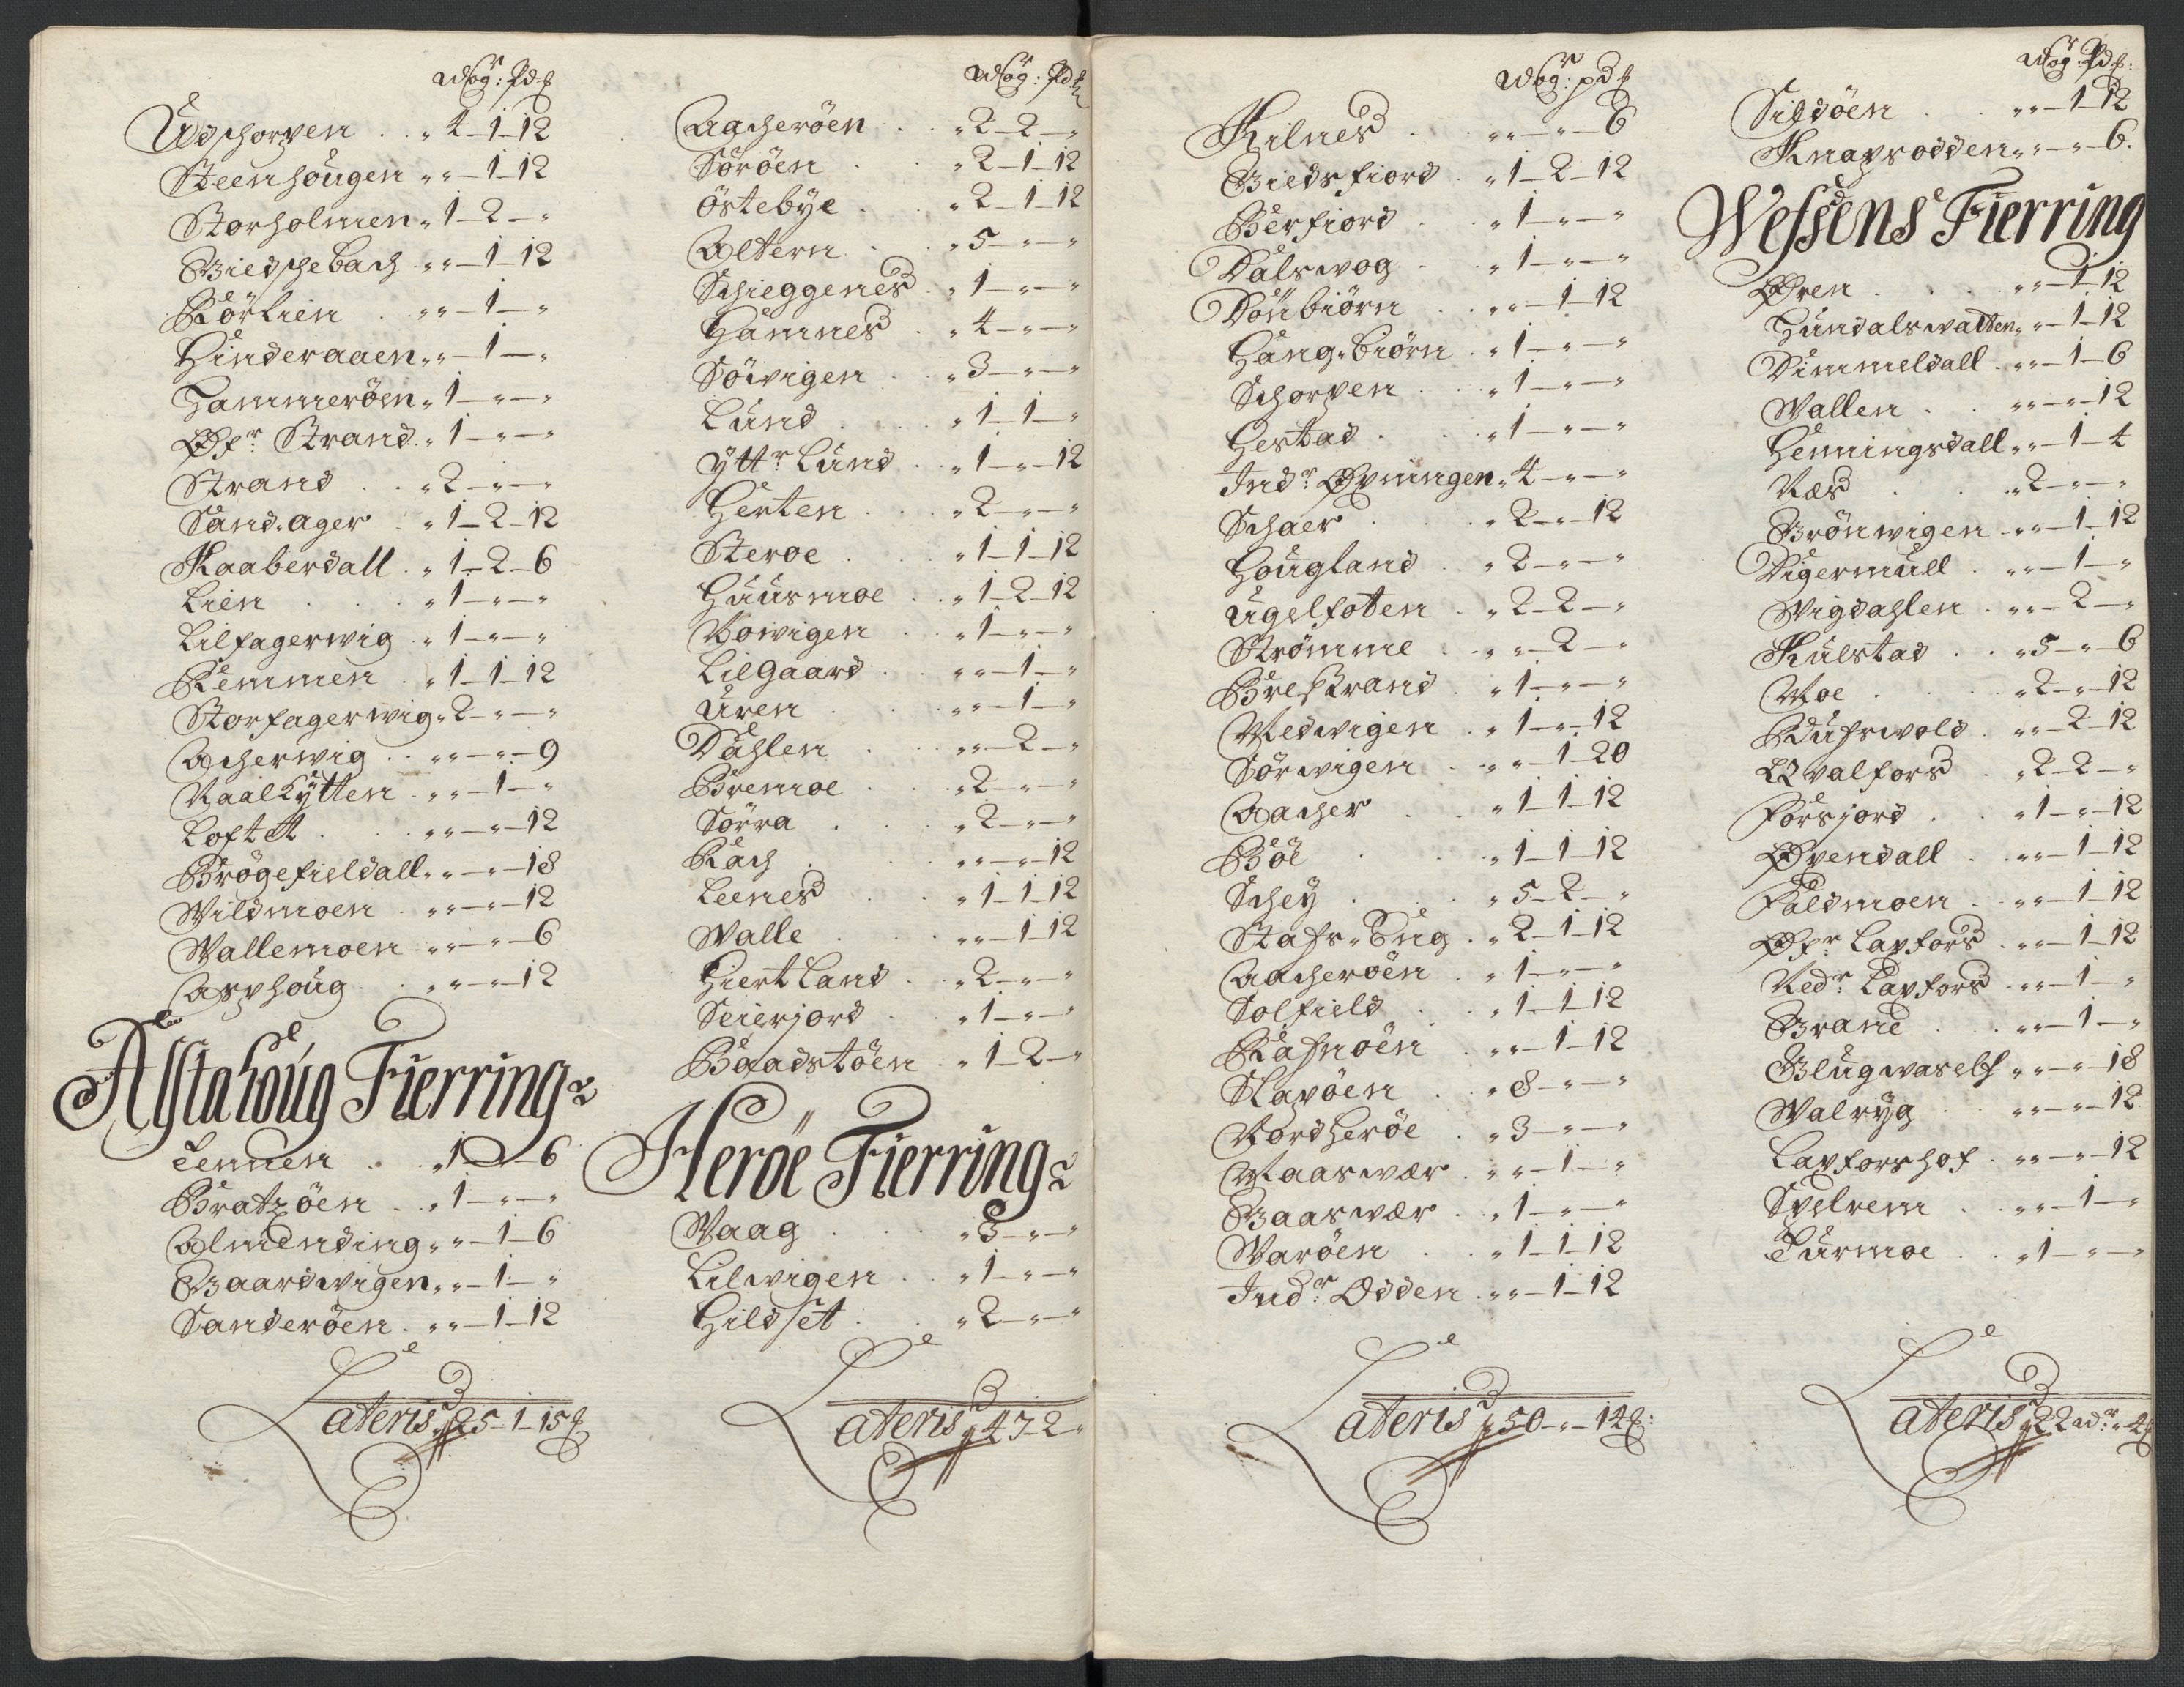 Wog: Pd ꝶ
Udschorpen . . „ 4–1–12
Steenhougen „ „ –1–12
Storholmen „ 1–2– „
Giedschebach „ „ –1–12
Rörlien . „ „ –1– „
Hinderaaen „ „ –1– „
Hammeröen „ 1– „ – „
Øfr Strand „ 1– „ – „
Strand . . „ 2– „ – „
Sand,ager . „ 1–2–12
Kaaberdall . „ 1–2–6
Lien . . . „ 1– „ – „
Lilfagerwig . „ 1– „ – „
Remmen . „ 1–1–12
Storfagerwig „ 2– „ – „
Acherwig . . „ „ – „ –9
Naalkytten . „ „ –1– „
Loftet . . . „ „ – „ –12
Brögefieldall „ „ – „ –18
Wildmoen . „ „ – „ –12
Wallemoen . „ „ – „ –6
Asphoug . . „ „ – „ –12
Alstahoug Fierring
Tennen . . „ 1– „ –6
Bratzöen . . „ 1– „ – „
Almending „ „ –1–6
Gaardwigen „ „ –1– „
Sanderöen . „ „ –1–12
Lateris 25–1–15 ꝶ
Wog: Pd ꝶ
Aacheröen . . „ 2–2– „
Söröen . . „ 2–1–12
Östebye . . „ 2–1–12
Altern . . „ 5– „ – „
Schieggenes . „ 1– „ – „
Hamnes . „ 4– „ – „
Söwigen . „ 3– „ – „
Lund . . . „ 1–1– „
Yttr Lund . . „ 1– „ –12
Herten . . . „ 2– „ – „
Steroe . . . „ 1–1–12
Huusmoe . . „ 1–2–12
Nowigen . . „ 1– „ – „
Lilgaard . . „ „ –1– „
Uren . . . „ „ –1– „
Dahlen . . „ „ –2– „
Bremoe . . . „ 2– „ – „
Sörra . . . „ 2– „ – „
Rach . . . „ „ – „ –12
Leenes . . „ 1–1–12
Walle . . . „ „ –1–12
Hiertland . . „ 2– „ – „
Seierjord . . „ 1– „ – „
Baadstöen . „ 1–2– „
Heröe Fierring
Waag . . . „ 3– „ – „
Lilwigen . . „ 1– „ – „
Hildset . . „ 2– „ – „
Lateris 47–2 „
Wog: pd ꝶ
Kilnes . . „ „ – „ –6
Giedsfiord . „ 1–2–12
Berfiord . . „ 1– „ – „
Dalswog . . „ 1– „ – „
Dönbiörn . . „ „ –1–12
Hang,biörn . „ 1– „ – „
Schorpen . . „ 1– „ – „
Hestad . . . „ 1– „ – „
Indr Øpningen „ 4– „ – „
Schaer . . . „ 2– „ –12
Hougland . „ 2– „ – „
Ugelfoten . „ 2–2– „
Strömme . . „ „ –2– „
Brestrand . „ 1– „ – „
Medwigen . „ 1– „ –12
Sörwigen . „ „ –1–20
Aacher . . „ 1–1–12
Böe . . . „ 1–1–12
Schey . . . „ 5–2– „
Stafs,Eng . . „ 2–1–12
Aacheröen . „ 1– „ – „
Solfield . . „ 1–1–12
Rafnöen . . „ „ –1–12
Slapöen . . „ 8– „ – „
Nordheröe . „ 3– „ – „
Maaswær . „ „ –1– „
Gaaswær . „ 1– „ – „
Waröen . . „ 1–1–12
Indr Odden . „ „ –1–12
Lateris 50– „ –14 ꝶ:
Wog: Pd ꝶ:
Sildöen . . „ „ –1–12
Knapsodden „ „ – „ –6.
Wefsens Fierring
Øren . . . „ „ –1–12
Hundalswatten „ „ –1–12
Dimmeldall . „ „ –1–6
Wallen . . „ „ – „ –12
Henningsdall „ „ –1–4
Næs . . . „ 2– „ – „
Brönwigen . „ „ –1–12
Digermull . „ „ –1– „
Wigdahlen . „ „ –2– „
Kulstad . . „ 5– „ –6
Moe . . . „ 2– „ –12
Dufswold . „ „ –2–12
Qvalfors . „ 2–2– „
Forsjord . . „ 1– „ –12
Øpendall . „ „ –1–12
Faldmoen . „ „ –1–12
Øfr Lapfors . „ „ –1–12
Nedr Lapfors . „ „ –1– „
Brane . . „ „ –1– „
Glugwaself „ „ – „ –18
Walryg . . „ „ – „ –12
Lapforshof . „ „ – „ –12
Spelrem . . „ „ –1– „
Turmoe . . „ 1– „ – „
Lateris 22 wr „ 4 ꝶ